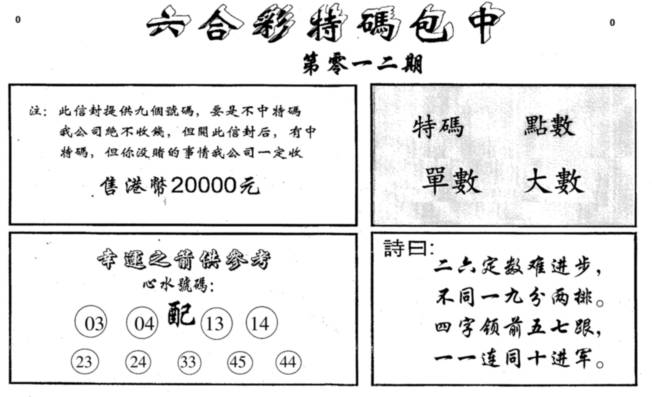 0
0
六合彩特碼包中
第零一二期
注：此信封提供九個號碼，要是不中特碼
我公司絕不收錢，但開此信封后，有中
特碼，但你没賭的事情我公司一定收
售港幣20000元
特碼 點數
單數 大數
幸運之箭供參考
心水號碼：
03 04 配 13 14
23 24 33 45 44
詩曰：
二六定数难进步，
不同一九分两排。
四字领前五七跟，
一一连同十进军。